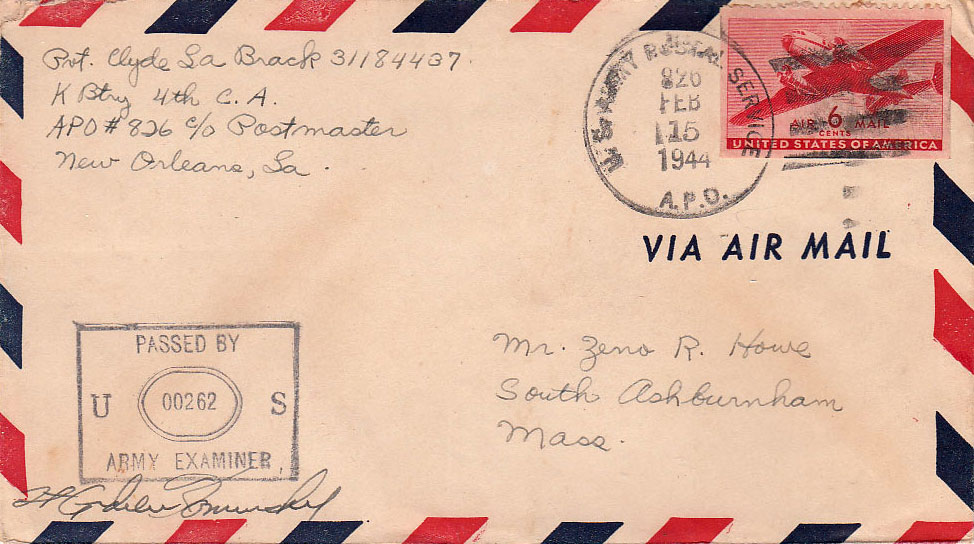 Pvt. Clyde La Brack 31184437
K Btry 4th C. A.
APO # 826 c/o Postmaster
New Orleans, La.
U.S. ARMY POSTAL SERVICE
826
FEB
15
1944
A.P.O.
AIR 6 MAIL
CENTS
UNITED STATES OF AMERICA
VIA AIR MAIL
PASSED BY
U 00262 S
ARMY EXAMINER
Mr. Zeno R. Howe
South Ashburnham
Mass.